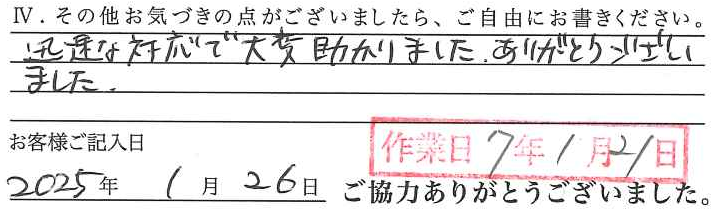 Ⅳ．その他お気づきの点がございましたら、ご自由にお書きください。
迅速な対応で大変助かりました.ありがとうございい
ました.
お客様ご記入日
作業日 7年 1月21日
2025年 1月 26日 ご協力ありがとうございました。